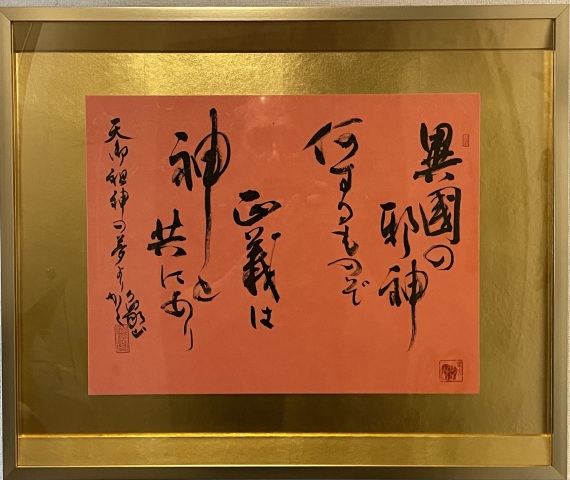 異國の
邪神
何するものぞ
正義は
神と
共にあり
天御祖神の夢より